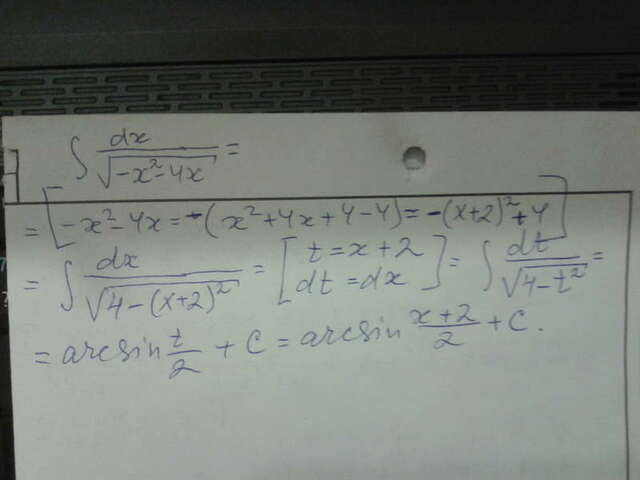 ∫ dx/√(-x²-4x) =
= [-x²-4x = -(x²+4x+4-4) = -(x+2)²+4]
= ∫ dx/√(4-(x+2)²) = [t=x+2 dt=dx] = ∫ dt/√(4-t²) =
= arcsin t/2 + C = arcsin (x+2)/2 + C.